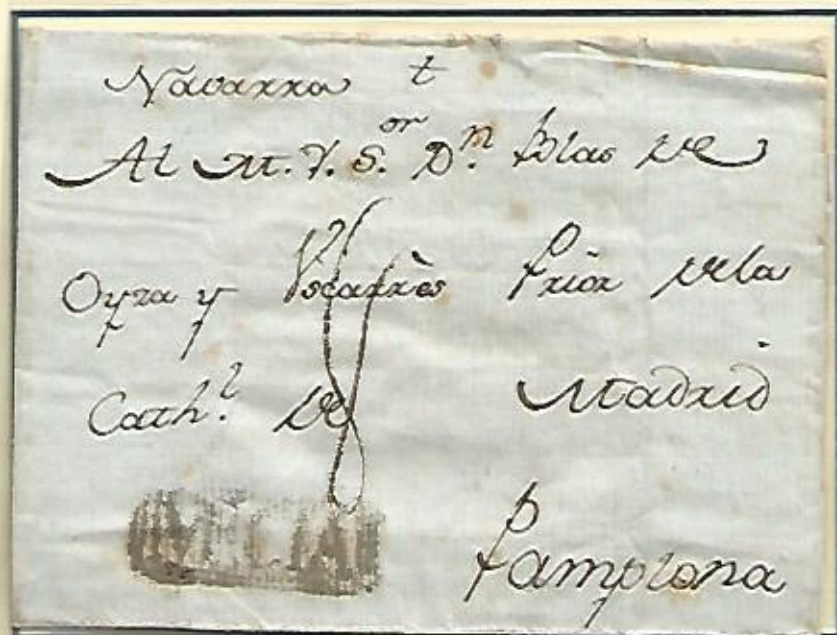 Navarra t
Al M. Y. S.or D.n Blas de
Oyza y Prior dela
Cath.l de Madrid
Pamplona